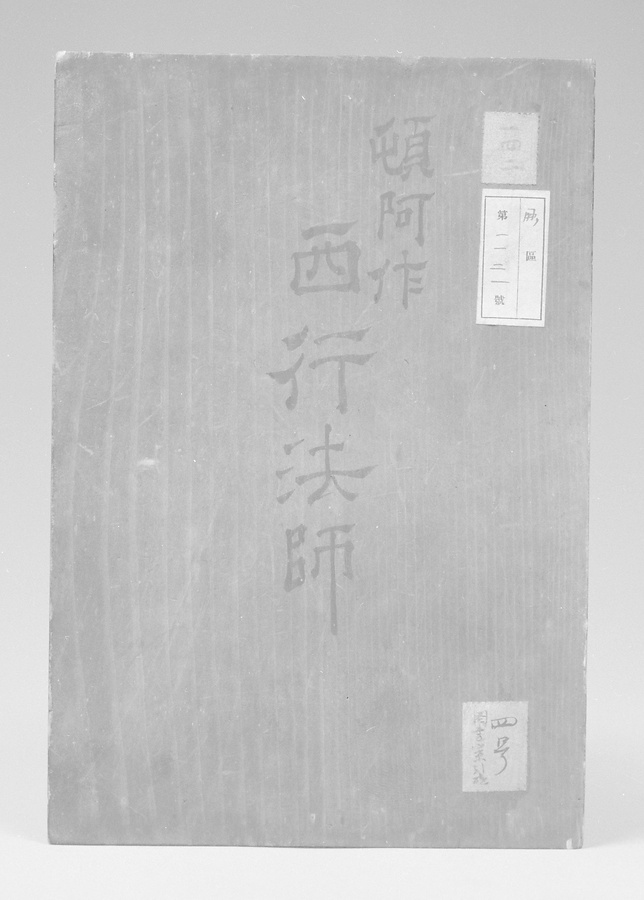 頓阿作
西行法師
一四二
區
第一一三一號
四号